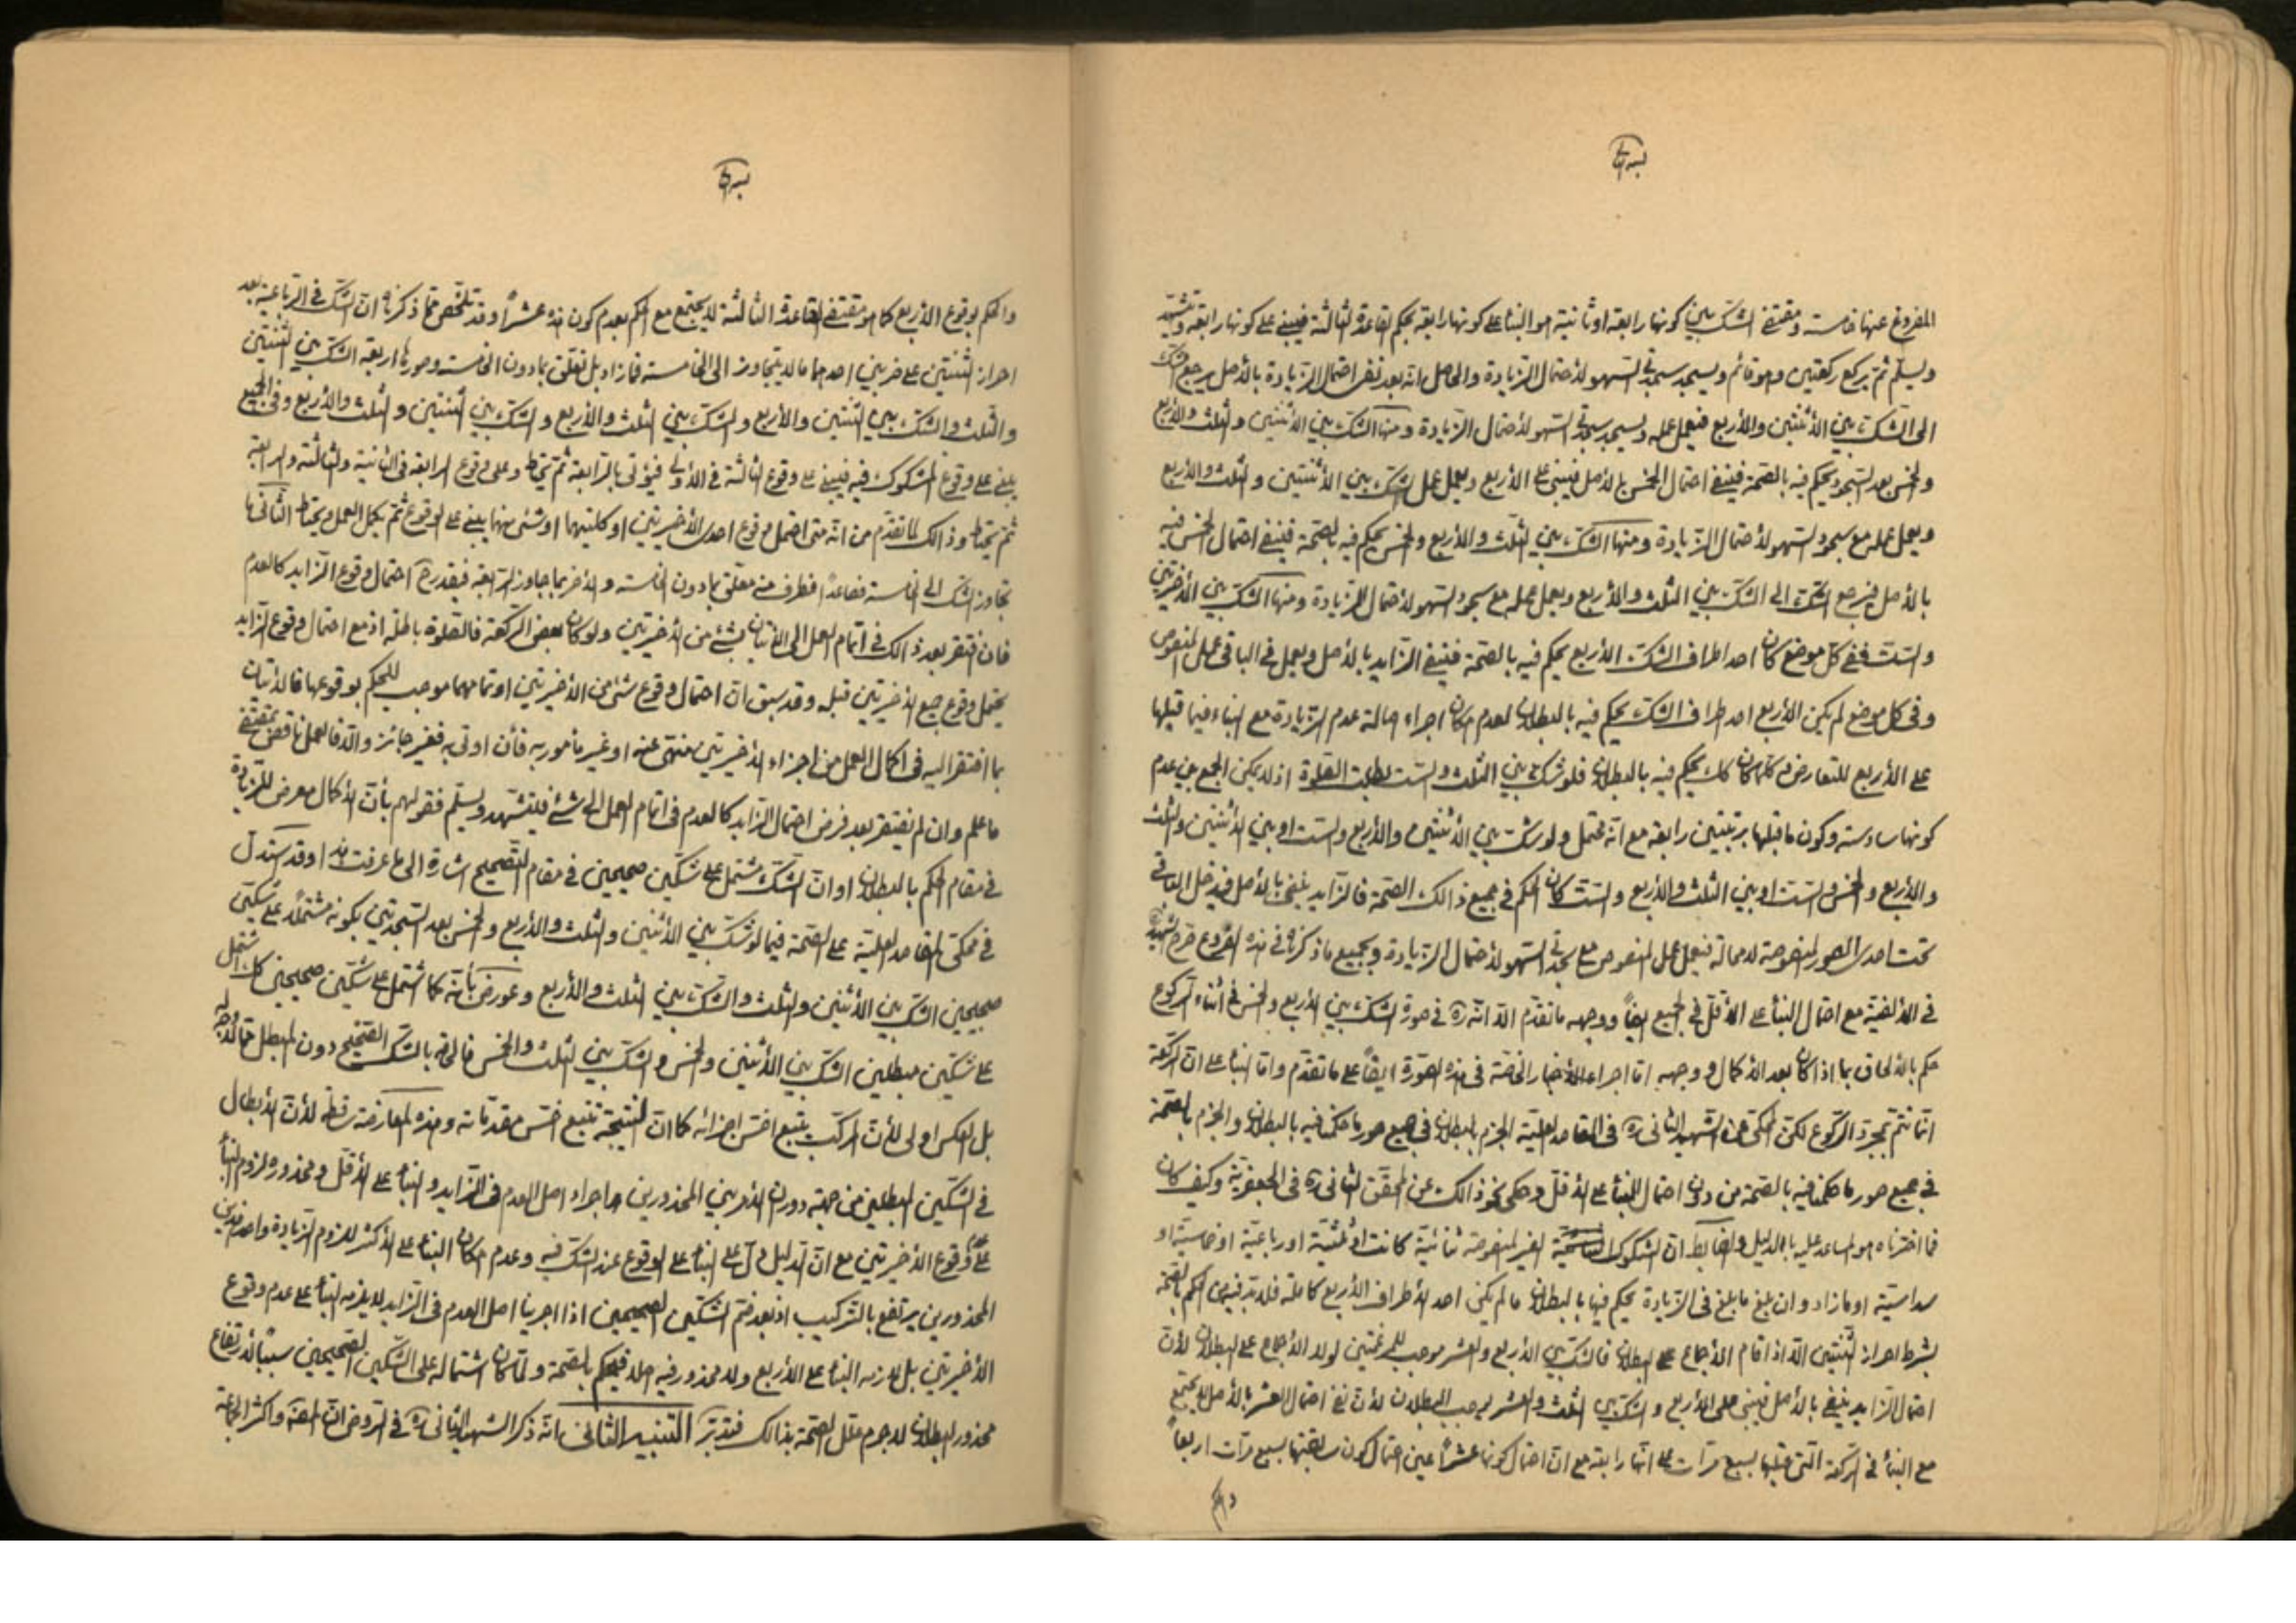 المفروغ عنها خامسة ومقتضى الشك بين كونها رابعة او ثانية هو البناء على كونها رابعة بحكم القاعدة الثالثة فيبنى على كونها رابعة ويتشهد
ويسلم ثم يركع ركعتين وهو قائم ويسجد سجدتى السهو لأحتمال الزيادة والحاصل انه بعد نفى احتمال الزيادة بالأصل يرجع الشك
الى الشك بين الأثنتين والأربع فيعمل عمله ويسجد سجدتى السهو لأحتمال الزيادة ومنها الشك بين الأثنتين والثلث والأربع
والخمس بعد السجود يحكم فيه بالصحة فينفى احتمال الخمس بالأصل فيبنى على الأربع ويعمل عمل الشك بين الأثنتين والثلث والأربع
ويعمل عمله مع سجود السهو لأحتمال الزيادة ومنها الشك بين الثلث والأربع والخمس يحكم فيه بالصحة فينفى احتمال الخمس فيه
بالأصل فيرجع الشك الى الشك بين الثلث والأربع ويعمل عمله مع سجود السهو لأحتمال الزيادة ومنها الشك بين الأخيرتين
والست ففى كل موضع كان احد اطراف الشك الأربع يحكم فيه بالصحة فينفى الزايد بالأصل ويعمل فى الباقى عمل المنصوص
وفى كل موضع لم يكن الأربع احد اطراف الشك يحكم فيه بالبطلان لعدم امكان اجراء اصالة عدم الزيادة مع البناء فيما قبلها
على الأربع للتعارض وكلما كان كك يحكم فيه بالبطلان فلو شك بين الثلث والست بطلت الصلوة اذ لا يمكن الجمع بين عدم
كونها سادسة وكون ما قبلها بمرتبتين رابعة مع انه محتمل ولو شك بين الأثنتين والأربع والست او بين الأثنتين والثلث
والأربع والخمس والست او بين الثلث والأربع والست كان الحكم فى جميع ذالك الصحة فالزايد ينفى بالأصل فيدخل الباقى
تحت احدى الصور المنصوصة لا محالة فيعمل عمل المنصوص مع سجدتى السهو لأحتمال الزيادة وبجميع ما ذكرناه فى هذه الفروع صرح الشهيد
فى الألفية مع احتمال البناء على الأقل فى الجميع ايضاً ووجهه ما تقدم الا انه ره فى صورة الشك بين الأربع والخمس فى أثناء الركوع
حكم بالألحاق بما اذا كان بعد الأكمال ووجهه اما اجراء الأخبار الخاصة فى هذه الصورة ايضاً على ما تقدم واما البناء على ان الركعة
انما تتم بمجرد الركوع لكن المحكى عن الشهيد الثانى ره فى المقاصد العلية الجزم بالبطلان فى جميع صور ما حكمنا فيه بالبطلان والجزم بالصحة
فى جميع صور ما حكمنا فيه بالصحة من دون احتمال للبناء على الأقل وحكى نحو ذالك عن المحقق الثانى ره فى الجعفرية وكيف كان
فما اخترناه هو المساعد عليه بالدليل والضابط ان الشكوك الغير المنصوصة ثنائية كانت او ثلثية او رباعية او خماسية او
سداسية او ما زاد وان بلغ ما بلغ فى الزيادة يحكم فيها بالبطلان ما لم يكن احد الأطراف الأربع كاملة فلابد فيه من الحكم بالصحة
بشرط احراز الثنتين الا اذا قام الأجماع على البطلان فالشك بين الأربع والعشر موجب للمرغمتين لولا الأجماع على البطلان لأن
احتمال الزايد ينفى بالأصل فيبنى على الأربع والشك بين الثلث والعشر يوجب البطلان لأن نفى احتمال العشر بالأصل لا يجتمع
مع البناء فى الركعة التى قبلها بسبع مرات على انها رابعة مع ان احتمال كونها عشراً عين احتمال كون سابقتها بسبع مرات اربعاً
والحكم بوقوع الأربع كما هو مقتضى القاعدة الثالثة لا يجتمع مع الحكم بعدم كون هذه عشراً وقد تلخص مما ذكرناه ان الشك فى الرباعية بعد
احراز الثنتين على ضربين احدهما ما لا يتجاوز الى الخامسة فما زاد بل تعلق بما دون الخامسة وصورها اربعة الشك بين الثنتين
والثلث والشك بين الثنتين والأربع والشك بين الثلث والأربع والشك بين الثنتين والثلث والأربع وفى الجميع
يبنى على وقوع المشكوك فيه فيبنى على وقوع الثالثة فى الأولى فيؤتى بالرابعة ثم يحتاط وعلى وقوع الرابعة فى الثانية والثالثة والرابعة
ثم يحتاط وذالك لما تقدم من انه متى احتمل وقوع احدى الأخيرتين او كلتيهما او شئ منها يبنى على الوقوع ثم يكمل العمل ويحتاط الثانى ما
تجاوز الشك الى الخامسة فصاعداً فطرف منه متعلق بما دون الخامسة والأخر بما جاوز الرابعة فيقدر ح احتمال وقوع الزايد كالعدم
فان افتقر بعد ذالك فى اتمام العمل الى الأتيان بشئ من الأخيرتين ولو كان بعض الركعة فالصلوة باطلة اذ مع احتمال وقوع الزايد
يحتمل وقوع جميع الأخيرتين قبله وقد سبق ان احتمال وقوع شئ من الأخيرتين او تمامهما موجب للحكم بوقوعها فالأتيان
بما افتقر اليه فى اكمال العمل من اجزاء الأخيرتين منهى عنه او غير مأمور به فأن اوتى به فغير جائز والا فالعمل ناقص بمقتضى
ما علم وان لم يفتقر بعد فرض احتمال الزايد كالعدم فى اتمام العمل الى شئ فليتشهد ويسلم فقولهم بأن الأكمال معرض للزيادة
فى مقام الحكم بالبطلان او ان الشك مشتمل على شكين صحيحين فى مقام التصحيح اشارة الى ما عرفت هذا وقد استدل
فى محكى المقاصد العلية على الصحة فيما لو شك بين الأثنين والثلث والأربع والخمس بعد السجدتين بكونه مشتملاً على شكين
صحيحين الشك بين الأثنين والثلث والشك بين الثلث والأربع وعورض بأنه كما اشتمل على شكين صحيحين كك اشتمل
على شكين مبطلين الشك بين الأثنين والخمس والشك بين الثلث والخمس فالحاقه بالشك الصحيح دون المبطل مما لا وجه له
بل العكس اولى لأن المركب يتبع اخس اجزائه كما ان النتيجة تتبع اخس مقدماته وهذه المعارضة ساقطة لأن الأبطال
فى الشكين المبطلين من جهة دوران الأمر بين المحذورين اجراء اصل العدم فى الزايد والبناء على الأقل ومحذوره لزوم البناء
على عدم وقوع الأخيرتين مع ان الدليل دل على البناء على الوقوع عند الشك فيه وعدم امكان البناء على الأكثر للزوم الزيادة واحد هذين
المحذورين يرتفع بالتركيب اذ بعد ضم الشكين الصحيحين اذا اجرينا اصل العدم فى الزايد لا يلزمه البناء على عدم وقوع
الأخيرتين بل لازمه البناء على الأربع ولا محذور فيه اصلا فيحكم بالصحة ولما كان اشتماله على الشكين الصحيحين سبباً لأرتفاع
محذور البطلان لا جرم علل الصحة بذالك فتدبر التنبيه الثانى انه ذكر الشهيد الثانى ره فى الروض ان المصنف واكثر الجماعة